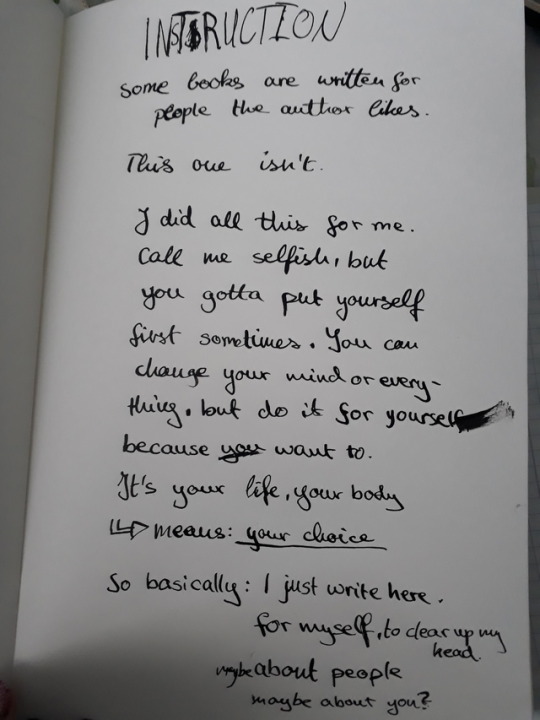 INSTRUCTION
some books are written for
people the author likes.
This one isn't.
I did all this for me.
Call me selfish, but
you gotta put yourself
first sometimes. You can
change your mind or every-
thing. but do it for yourself
because you want to.
It's your life, your body
means: your choice
So basically: I just write here.
for myself, to clear up my
head.
maybe about people
maybe about you?